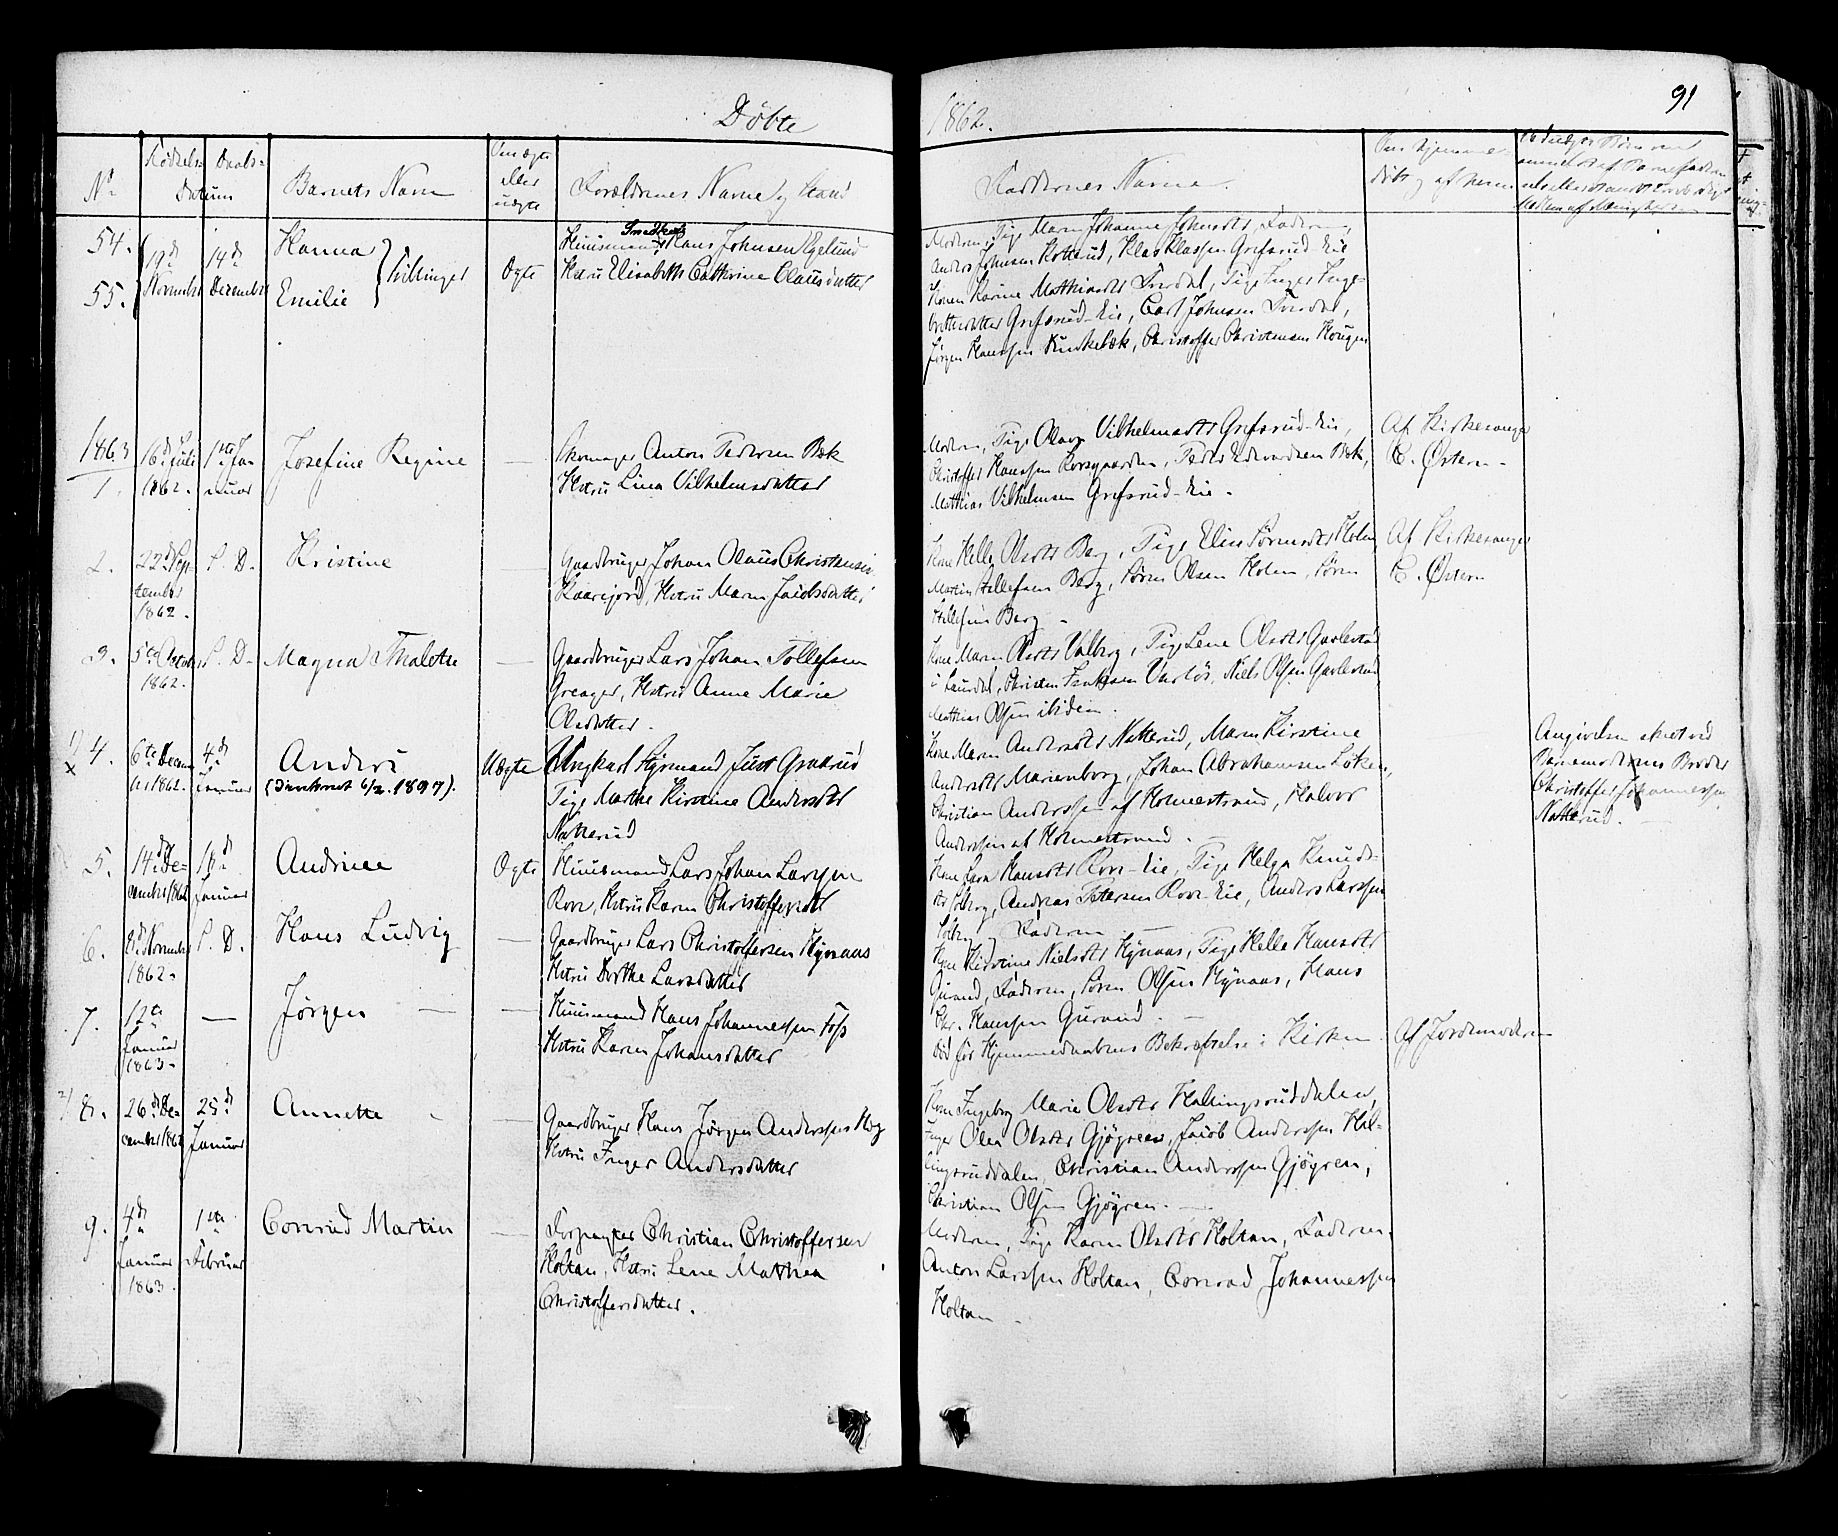 Döbte
1862.
91
No
Födsels-
Daabs-
Datum
Barnets Navn
Om ægte
eller
uægte
Forældrenes Navne og Stand
Faddernes Navne.
54.
55.
19de
Novembr
14de
Decembr
Hanna
Emilie
Tvillinger
Ægte
Huusmand Smedløk Hans Johnsen Egelund
Hstru Elisabeth Cathrine Olausdatter
Moderen, Pige Maren Johanne Johnsdtr, Faderen,
Anders Johnsen Kotterud, Klas Klassen Grefsrud-Eie
Konen Karine Mathiasdtr Tverdal, Pige Inger Inge-
brethsdatter Grefsrud-Eie, Carl Johnsen Tverdal,
Jørgen Hanssen Kinkebæk, Christoffer Christensen Hougen
1863
1.
16de Juli
1862.
1ste Ja-
nuar
Josefine Regine
—
Skomager Anton Pedersen Bæk
Hstru Lina Vilhelmsdatter
Moderen, Pige Olava Vilhelmsdtr Grefsrud-Eie,
Christoffer Hanssen Korsgaarden, Peder Edvardsen Bæk,
Mathias Vilhelmsen Grefsrud-Eie.
Af Kirkesanger
C. Østern
2.
22de Sep-
tember
1862.
S. D.
Kristine
—
Gaardbruger Johan Olaus Christensen
Kaarejord, Hstru Maren Jacobsdatter
Kone Helle Olsdtr Berg, Pige Elen Sørensdtr Holm
Martin Hellefsen Berg, Søren Olsen Holm, Søren
Hellefsen Berg
Af Kirkesanger
C. Østern
3.
5te October
1862.
S. D.
Magna Thalette
—
Gaardbruger Lars Johan Tollefsen
Greager, Hstru Anne Marie
Olsdatter.
Kone Maren Olsdtr Valberg, Pige Lene Olsdtr Gavlestad
i Laurdal, Christen Varløs, Niels Olsen Gavlestad
Mathias Olsen ibidem.
4.
6te Decem-
ber 1862.
4de
Januar
Anders
(Innskrevet 6/2. 1897).
Uægte
Ungkarl Styrmand Just Graarud
Pige Marthe Kirstine Andersdtr
Natterud
Kone Maren Andersdtr Natterud, Maren Kirstine
Andersdtr Marienborg, Johan Abrahamsen Løken,
Christian Anderssen af Holmestrand, Halvor
Anderssen af Holmestrand.
Angivelsen skeet ved
Barnemoderens Broder
Christoffer Johannessen
Natterud.
5.
14de De-
cember 1862
18de
Januar
Andrine
Ægte
Huusmand Lars Johan Larssen
Rove, Hstru Karen Christoffersdtr
Kone Lava Hansdtr Rove-Eie, Pige Helga Knuds-
dtr Solberg, Andreas Petersen Rove-Eie, Anders Larssen
Solberg, Faderen
6.
8de Novembr
1862.
S. D.
Hans Ludvig
—
Gaardbruger Lars Christoffersen Hynaas
Hstru Dorthe Larsdatter
Kone Kirstine Nielsdtr Hynaas, Pige Helle Hansdtr
Gurand, Faderen, Søren Olsen Hynaas, Hans
Chr. Hanssen Gurand.
7.
12te
Januar
1863.
—
Jørgen
—
Huusmand Hans Johannessen Foss
Hstru Karen Johansdatter
Død før Hjemmedaabens Bekræftelse i Kirken
Af Jordemoderen
8.
26de De-
cember 1862
25de
Januar
Annette
—
Gaardbruger Hans Jørgen Anderssen Høg
Hstru Inger Andersdatter
Kone Ingeborg Marie Olsdtr Hallingsruddalen,
Inger Olea Olsdtr Gjøgreen, Jacob Anderssen Hal-
lingsruddalen, Christian Anderssen Gjøgren,
Christian Olsen Gjøgren.
9.
4de
Januar
1863.
1ste
Februar
Conrad Martin
—
Forpagter Christian Christoffersen
Holtan, Hstru Lene Mathea
Christoffersdatter.
Moderen, Pige Karen Olsdtr Holtan, Faderen,
Anton Larssen Holtan, Conrad Johannessen
Holtan